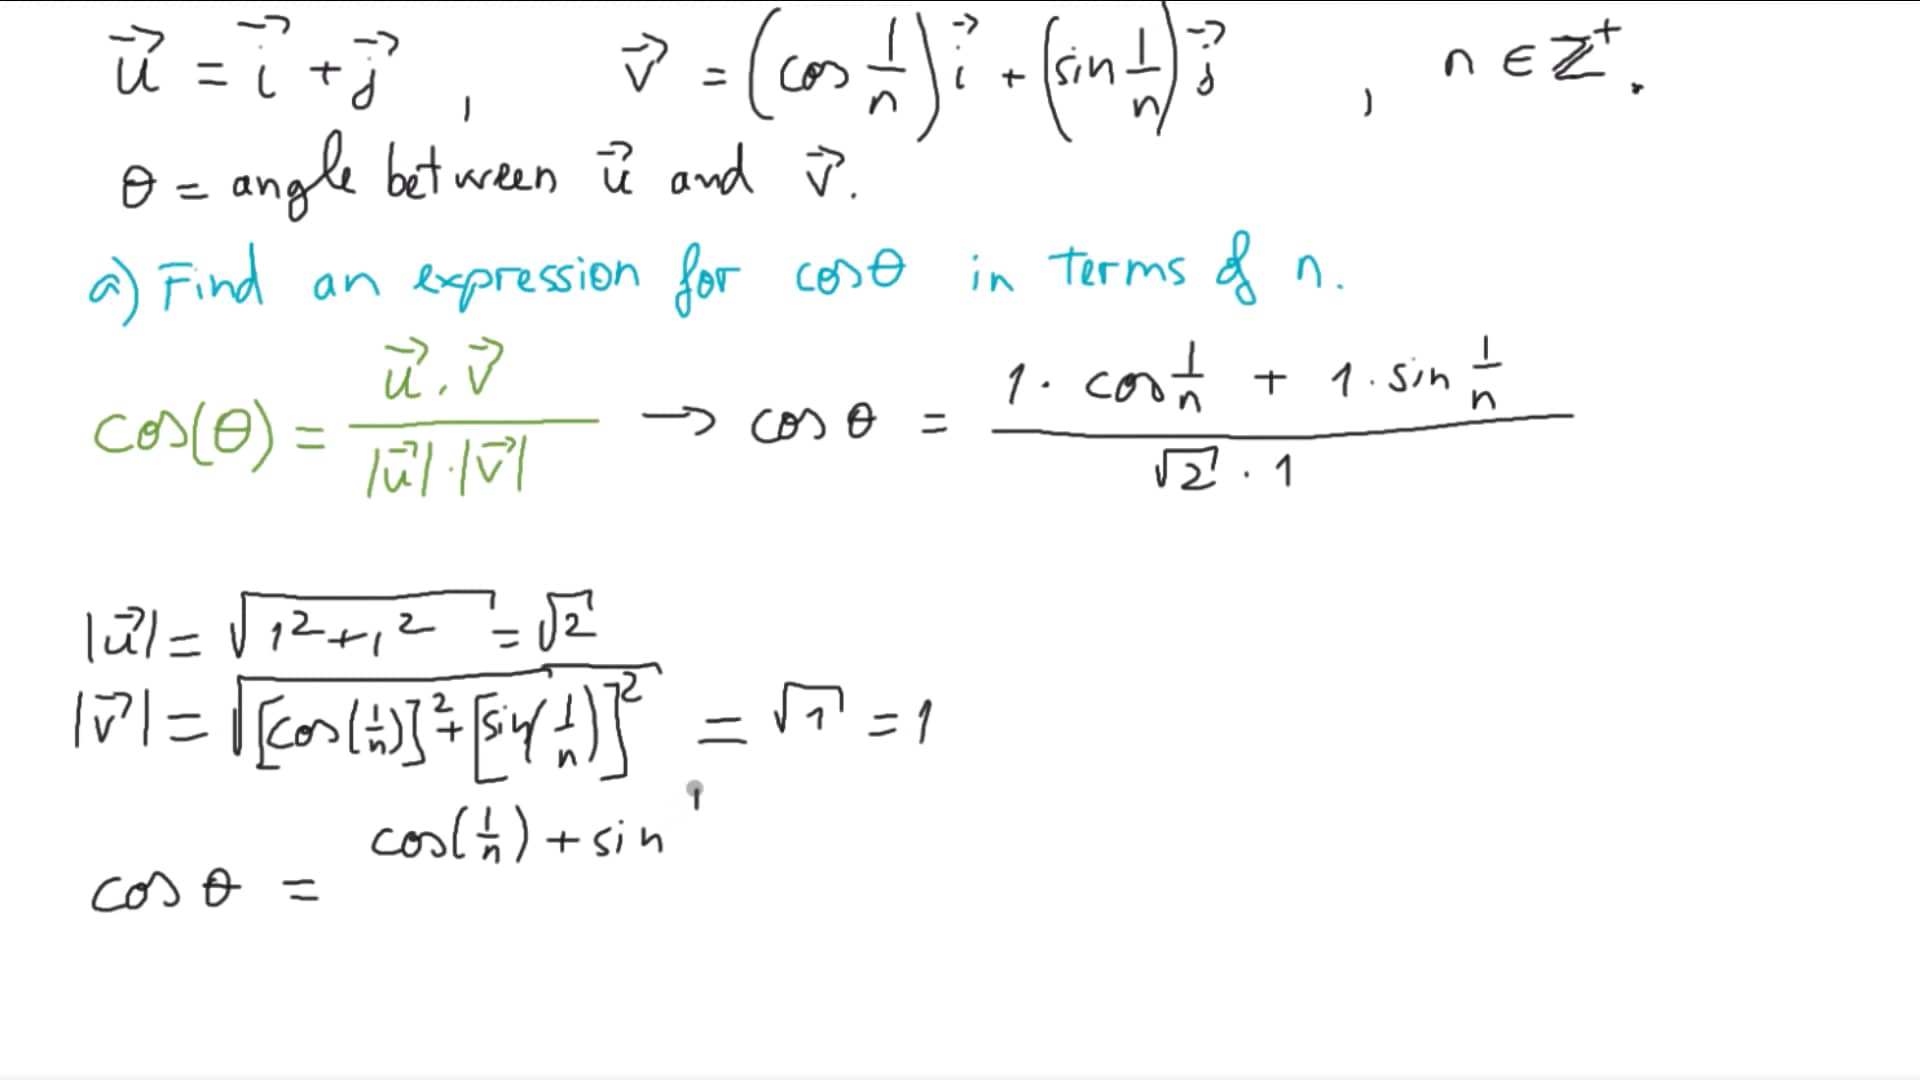 u⃗ = i⃗ + j⃗ , v⃗ = (cos 1/n) i⃗ + (sin 1/n) j⃗ , n ∈ ℤ⁺.
θ = angle between u⃗ and v⃗.
a) Find an expression for cosθ in terms of n.
cos(θ) = u⃗ . v⃗ / |u⃗| · |v⃗| → cos θ = 1 · cos 1/n + 1 · sin 1/n / √2 · 1
|u⃗| = √(1² + 1²) = √2
|v⃗| = √([cos(1/n)]² + [sin(1/n)]²) = √1 = 1
cos θ = cos(1/n) + sin 1